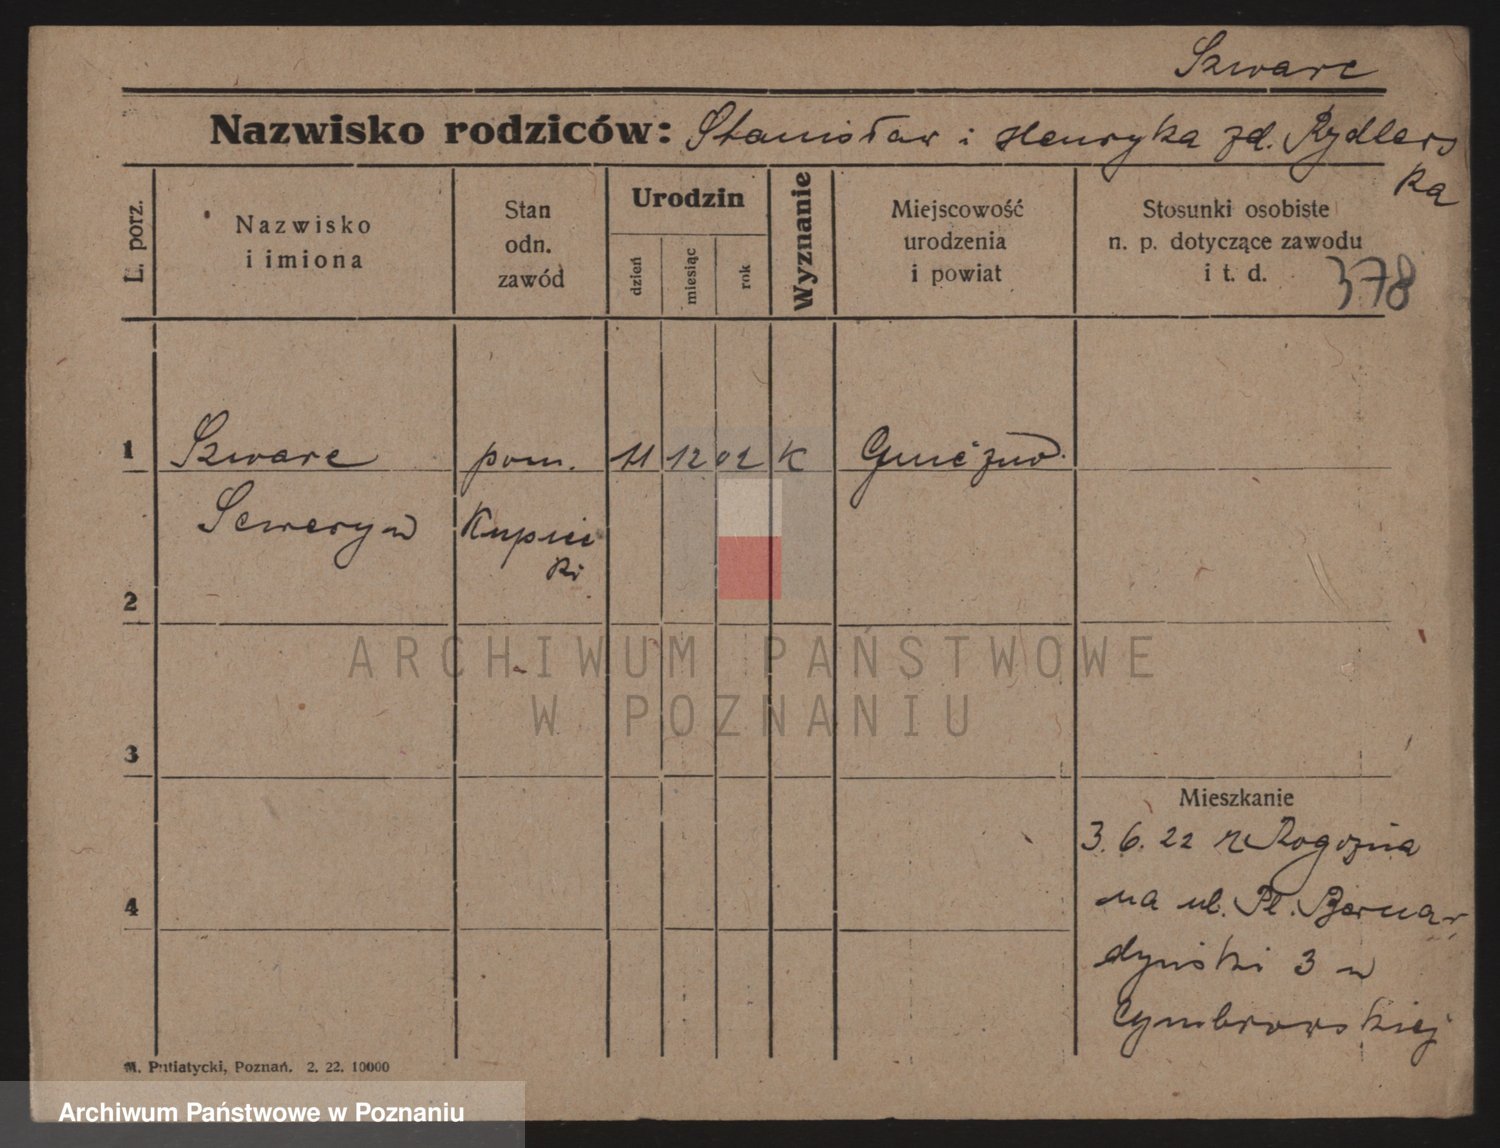 Szwarc
Nazwisko rodziców: Stanisław i Henryka zd. Rydlers
ka
L. porz.
Nazwisko
i imiona
Stan
odn.
zawód
Urodzin
dzień
miesiąc
rok
Wyznanie
Miejscowość
urodzenia
i powiat
Stosunki osobiste
n. p. dotyczące zawodu
i t. d.
378
1 Szwarc pom. 11 12 02 K Gniezno.
Seweryn Kupiec
ki
2
3
4
Mieszkanie
3. 6. 22 z Rogoźna
na ul. Pl. Bernar
dyński 3 u
Cymbrowskiej
M. Putiatycki, Poznań. 2. 22. 10000
ARCHIWUM PAŃSTWOWE
W POZNANIU
Archiwum Państwowe w Poznaniu